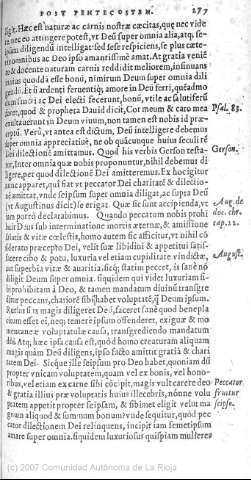 POST PENTECOSTEM. 277
sigit. Hæc est naturæ ac carnis nostræ cæcitas, quę nec vide
re nec eo attingere potest, vt Deū super omnia alia, atq. se-
ipsam diligendū intelligat: sed sese respiciens, se plus cæte-
ris omnibus ac Deo ipso amantissimè amat. At gratia veniē
te & docente naturam carnis reddidit meliorem, insinuans
quod dilè esse honū, nimirum Deum super omnia dili
gendū. Et si ardenti feruentiq; amore in Deū ferri, quādo
nostri ac Dei electi fecerunt, honū, vtile ac salutiferū
foret, quod & propheta Dauid dicit, Cor meum & caro mea
Psal. 83.
exultauerunt in Deum viuum, non tamen est nobis id præ-
ceptū. Verū, vt antea est dictum, Deū intelligere debemus
super omnia appreciatiuè, ne ob quācunque huius seculi
dilectionē amittamus. Quod his verbis Gerson
Gerson.
tur, Inter omnia quæ nobis proponuntur, nihil debemus di
ligere, per quod dilectionē Dei amitteremus. Ex hoc igitur
apparet, qui fiat vt peccator Dei charitatē & dilectio-
nē amittat, vnde seipsum super omnia diligat, ac supra Deū
(vt Augustinus dicit) se erigat. Quæ sic sunt accipienda, vt
Aug. de
iam porrò declarabimus. Quando peccatum nobis prohi
doc. chr.
buit Deus sub interminatione mortis æternæ, & amissione
cap. 22.
illius & vitæ cœlestis, homo autem sic afficitur, vt nihil cō
siderato præcepto Dei, velit suæ libidini & appetitui satis-
facere cibo & potu, luxuria vel etiam cupiditate vindictæ,
August.
aut superbia vitæ & auaritia. sicq; statim peccet, is sanè nō
diligit Deum super omnia. siquidem qui videt luxuriam si-
bi prohibitam à Deo, & tamen mandatum diuinū transgre
ditur peccans, chariorē sibi habet voluptatē, ꝗ Deum ipsum.
Rursus si is magis diligeret Deū, faceret sanè quod benepla
citum esset ei, neq; temerè ipsum offenderet, exiguæ & mo
mentaneæ voluptatis causa, transgrediendo mandatum
dñi. Atq; hæc ipsa causa est, quòd homo creaturam aliquam
magis quàm Deū diligens, ipso facto amittit gratiā & chari
tatem Dei. Sicque ille seipsum pro Deo habet, quoniam dū
propter vnicam voluptatem, quam vel ex bonis, vel hono-
ribus, vel etiam ex carne sibi cōcipit, magis vult carere deo
Peccator
& gratia illius præ voluptatis huius illecebris, nonne volu
fruitur
ptatem appetit propter seipsum, & sibimet eligit velut ma
seipso.
gnum aliquod & summum bonum? vnde sequitur, quòd pec
cator dilectionem Dei relinquens, incipit iam semetipsum
amare super omnia. siquidem luxuriosus quispiam mulieres
(c) 2007 Comunidad Autónoma de La Rioja